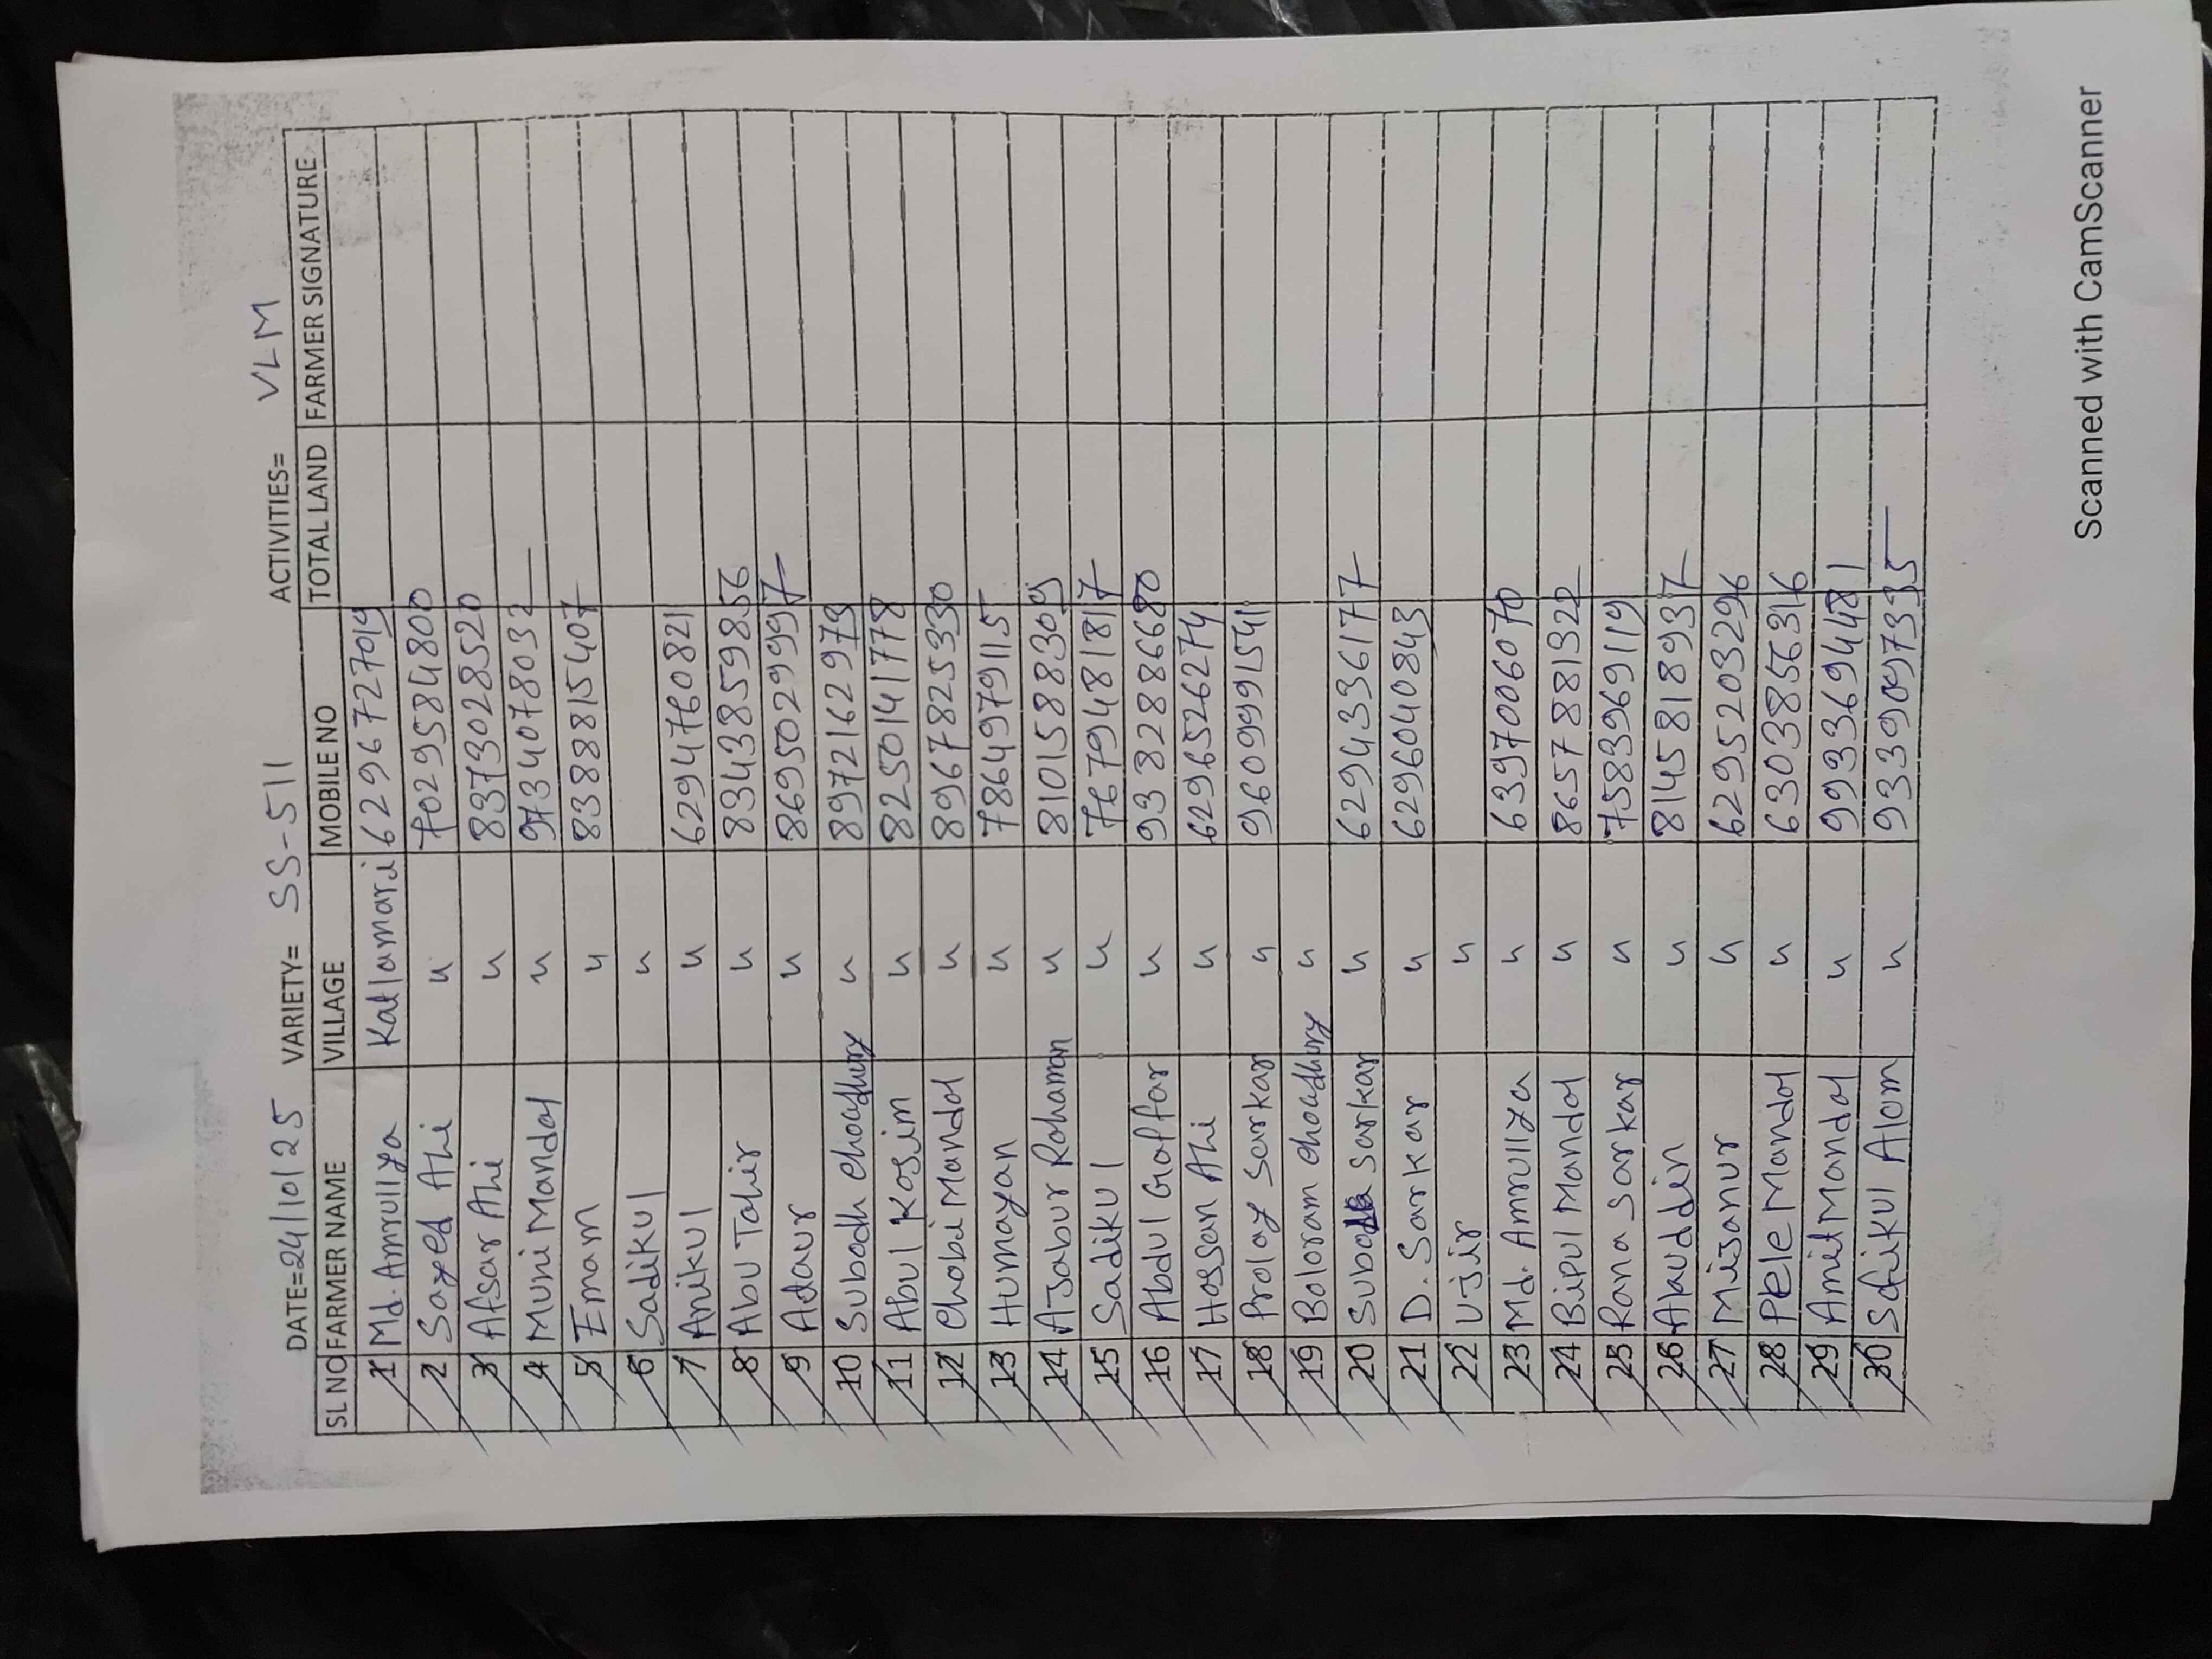 DATE=24/10/25 VARIETY= SS-511 ACTIVITIES= VLM
SL NO FARMER NAME VILLAGE MOBILE NO TOTAL LAND FARMER SIGNATURE
1 Md. Amrullya Katlamari 6296727019
2 Sayed Ali u 7029584800
3 Afsar Ali u 8373028520
4 Muni Mandal u 9734078032
5 Emam u 8388815407
6 Sadikul u
7 Anikul u 6294760821
8 Abu Tahir u 8343859856
9 Adaur u 8695029997
10 Subodh Choudhury u 8972162979
11 Abul Kosim u 8250141778
12 Chobi Mandal u 8967825330
13 Humayan u 7864979115
14 AJabur Rohaman u 8101588309
15 Sadikul u 7679481817
16 Abdul Gaffar u 9382886680
17 Hossan Ali u 6296526274
18 Proloy Sarkar u 9609991541
19 Boloram Choudhury u
20 Subodh Sarkar u 6294336177
21 D. Sarkar u 6296040843
22 Ujir u
23 Md. Amrullya u 6397006070
24 Bipul Mandal u 8657881322
25 Rana Sarkar u 7583969119
26 Alauddin u 8145818937
27 Misanur u 6295203296
28 Pele Mandal u 6303856316
29 Amit Mandal u 9933694481
30 Safikul Alom u 9339097335
Scanned with CamScanner